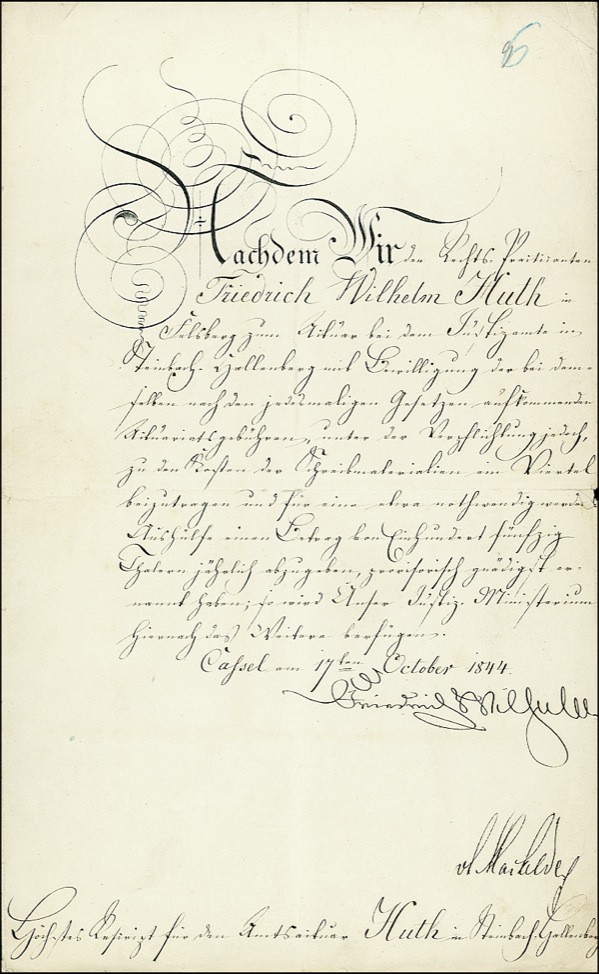 Nachdem Wir den Rechts-Practicanten
Friedrich Wilhelm Huth in
Felsberg zum Actuar bei dem Justizamte in
Steinbach-Hallenberg mit Bewilligung der bei dem-
selben nach den jedesmaligen Gesetzen aufkommenden
Actuariatsgebühren, unter der Verpflichtung jedoch,
zu den Kosten der Schreibmaterialien ein Viertel
beizutragen und für eine etwa nothwendig werdende
Aushülfe einen Betrag von Einhundert fünfzig
Thalern jährlich abzugeben, provisorisch gnädigst er-
nannt haben; so wird Unser Justiz-Ministerium
hiernach das Weitere verfügen.
Cassel am 17ten October 1844.
Friedrich Wilhelm
Höchstes Rescript für den Amtsactuar Huth in Steinbach-Hallenberg